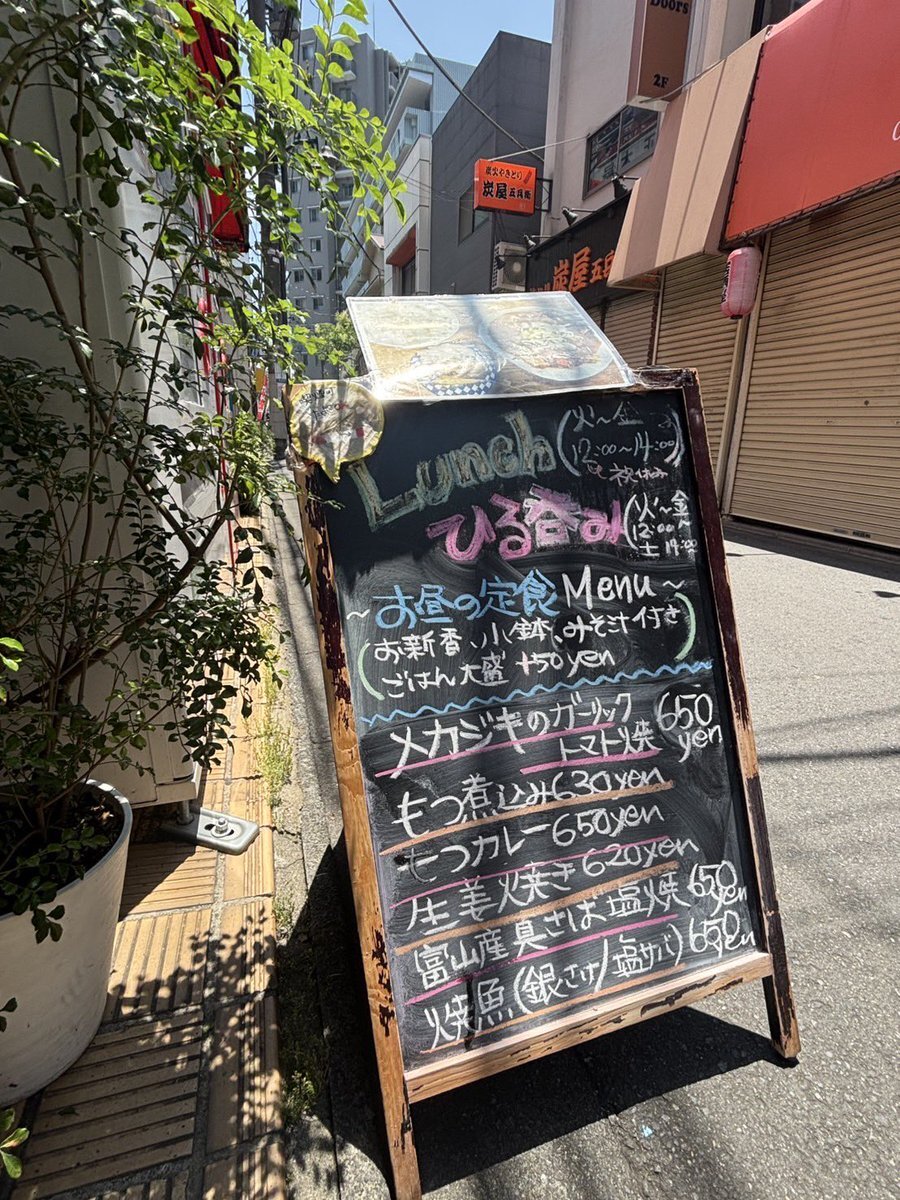 Doors
2F
炭火やきとり
炭屋 五兵衛
炭屋五
Lunch (火〜金
12:00〜14:00)
祝休み
ひる呑み (火〜金
12:00〜
土 14:00
〜お昼の定食 Menu〜
(お新香、小鉢、みそ汁付き
ごはん大盛 +50yen)
メカジキのガーリック
トマト焼 650 yen
もつ煮込み 630yen
もつカレー 650yen
生姜焼き 620yen
富山産真さば塩焼 650 yen
焼魚(銀さけ/塩サバ) 650yen